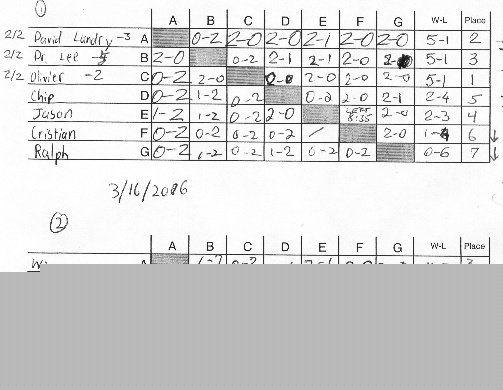 ①
A B C D E F G W-L Place
2/2 David Landry -3 A 0-2 2-0 2-0 2-1 2-0 2-0 5-1 2
2/2 Dr. Lee B 2-0 0-2 2-1 2-1 2-0 5-1 3
2/2 Olivier -2 C 0-2 2-0 2-0 2-0 2-0 5-1 1
Chip D 0-2 1-2 0-2 0-2 2-0 2-1 2-4 5
Jason E 1-2 1-2 0-2 2-0 LEFT 8:35 2-0 2-3 4
Cristian F 0-2 0-2 0-2 0-2 / 2-0 1-4 6 ↓
Ralph G 0-2 1-2 0-2 1-2 0-2 0-2 0-6 7 ↓
3/16/2006
②
A B C D E F G W-L Place